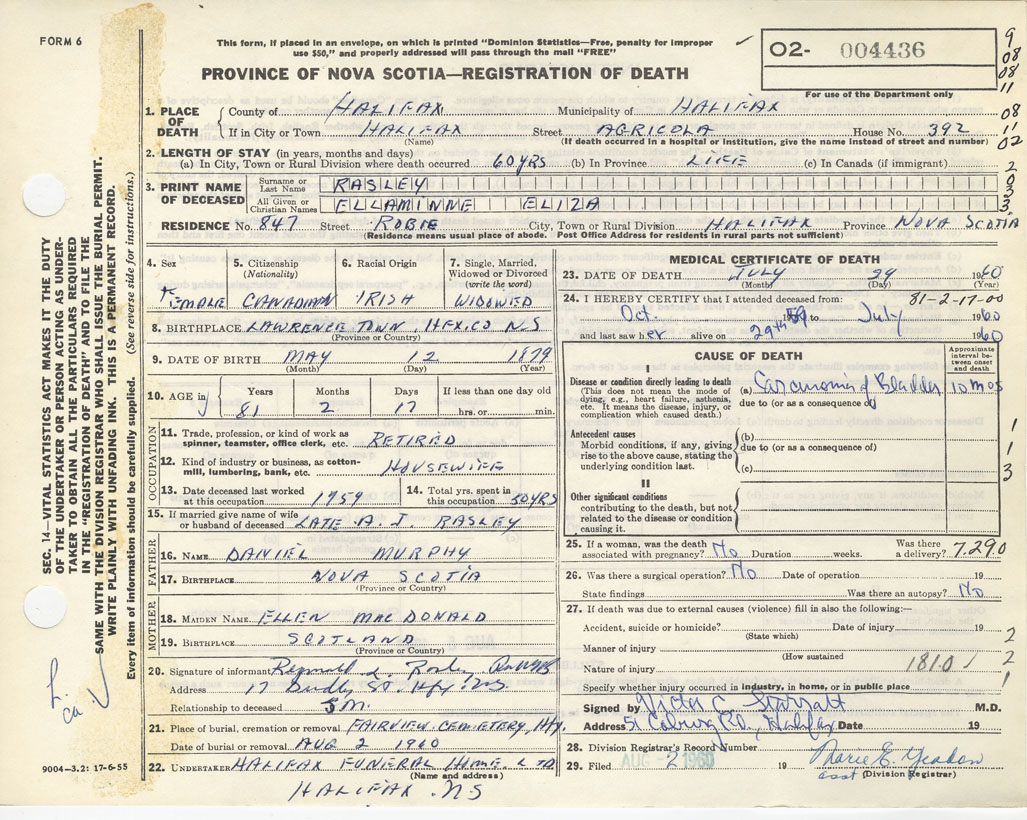 FORM 6
This form, if placed in an envelope, on which is printed "Dominion Statistics—Free, penalty for improper
use $50," and properly addressed will pass through the mail "FREE"
PROVINCE OF NOVA SCOTIA—REGISTRATION OF DEATH
O2- 004436
For use of the Department only
9
08
08
11
08
11
02
2
0
3
3
1. PLACE OF DEATH
County of HALIFAX Municipality of HALIFAX
If in City or Town HALIFAX Street AGRICOLA House No. 392
(Name) (If death occurred in a hospital or institution, give the name instead of street and number)
2. LENGTH OF STAY (in years, months and days)
(a) In City, Town or Rural Division where death occurred 60 YRS (b) In Province LIFE (c) In Canada (if immigrant)
3. PRINT NAME OF DECEASED
Surname or Last Name RASLEY
All Given or Christian Names ELLAMINNE ELIZA
RESIDENCE No. 847 Street ROBIE City, Town or Rural Division HALIFAX Province NOVA SCOTIA
(Residence means usual place of abode. Post Office Address for residents in rural parts not sufficient)
4. Sex FEMALE
5. Citizenship (Nationality) CANADIAN
6. Racial Origin IRISH
7. Single, Married, Widowed or Divorced (write the word) WIDOWED
8. BIRTHPLACE LAWRENCE TOWN. HFX. CO N.S
(Province or Country)
9. DATE OF BIRTH MAY 12 1879
(Month) (Day) (Year)
10. AGE in Years Months Days If less than one day old
81 2 17 hrs. or min.
OCCUPATION
11. Trade, profession, or kind of work as spinner, teamster, office clerk, etc. RETIRED
12. Kind of industry or business, as cotton-mill, lumbering, bank, etc. HOUSEWIFE
13. Date deceased last worked at this occupation 1959
14. Total yrs. spent in this occupation 50 YRS
15. If married give name of wife or husband of deceased LATE A. J. RASLEY
FATHER
16. NAME DANIEL MURPHY
17. BIRTHPLACE NOVA SCOTIA
(Province or Country)
MOTHER
18. MAIDEN NAME ELLEN MACDONALD
19. BIRTHPLACE SCOTLAND
(Province or Country)
20. Signature of informant Reginald L. Rasley
Address 17 Dudley ST. Hfx N.S.
Relationship to deceased Son.
21. Place of burial, cremation or removal FAIRVIEW CEMETERY, Hfx.
Date of burial or removal AUG 2 1960
22. UNDERTAKER HALIFAX FUNERAL HOME. LTD
(Name and address)
HALIFAX. N.S
MEDICAL CERTIFICATE OF DEATH
23. DATE OF DEATH JULY 29 1960
(Month) (Day) (Year)
81-2-17-00
24. I HEREBY CERTIFY that I attended deceased from:
Oct. 1959 to July 1960
and last saw her alive on 29th 1960
CAUSE OF DEATH
Approximate interval between onset and death
I
Disease or condition directly leading to death
(This does not mean the mode of dying, e.g., heart failure, asthenia, etc. It means the disease, injury, or complication which caused death.)
(a) Carcinoma of Bladder 10 mos
due to (or as a consequence of)
Antecedent causes
Morbid conditions, if any, giving rise to the above cause, stating the underlying condition last.
(b)
due to (or as a consequence of)
(c)
II
Other significant conditions
contributing to the death, but not related to the disease or condition causing it.
1
1
3
25. If a woman, was the death associated with pregnancy? No Duration weeks. Was there a delivery? 7.290
26. Was there a surgical operation? No Date of operation 19
State findings Was there an autopsy? No
27. If death was due to external causes (violence) fill in also the following:—
Accident, suicide or homicide? Date of injury 19
(State which)
Manner of injury
(How sustained
Nature of injury 1810 1
2
2
1
Specify whether injury occurred in industry, in home, or in public place
Signed by Victor C. Starratt M.D.
Address 51 Coburg Rd., Halifax Date 19
28. Division Registrar's Record Number
29. Filed AUG -2 1960 19 Marie E. Yeadon
asst (Division Registrar)
SEC. 14—VITAL STATISTICS ACT MAKES IT THE DUTY
OF THE UNDERTAKER OR PERSON ACTING AS UNDER-
TAKER TO OBTAIN ALL THE PARTICULARS REQUIRED
IN THE "REGISTRATION OF DEATH" AND TO FILE THE
SAME WITH THE DIVISION REGISTRAR WHO SHALL ISSUE THE BURIAL PERMIT.
WRITE PLAINLY WITH UNFADING INK. THIS IS A PERMANENT RECORD.
Every item of information should be carefully supplied. (See reverse side for instructions.)
9004-3.2: 17-6-55